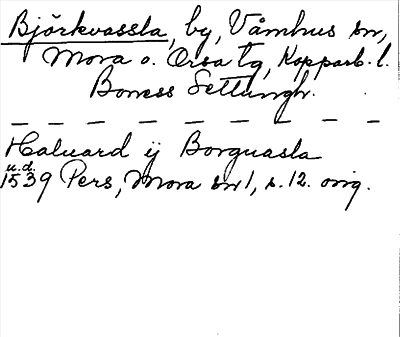 Björkvassla, by, Våmhus sn,
Mora o. Orsa tg, Kopparb. l.
Boness Settungh.
Haluard ij Borguasla
u.d.
1539 Pers, Mora sn 1, s. 12. orig.